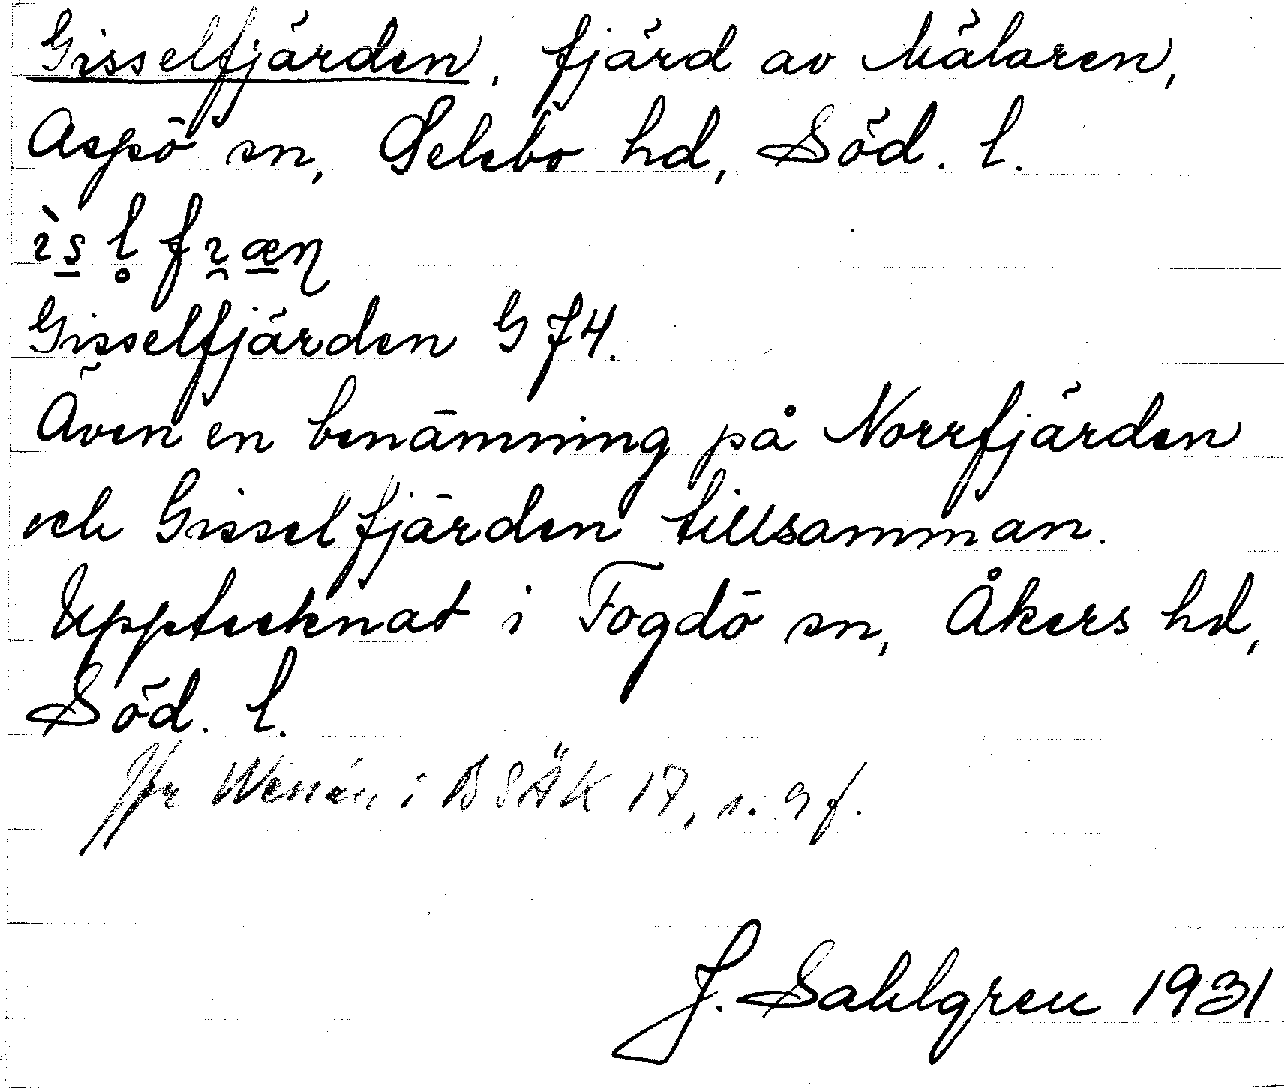 Gisselfjärden, fjärd av Mälaren,
Aspö sn, Selebo hd, Söd. l.
ìs̲l̥fɿ̯æ̲ɳ
Gisselfjärden G 74.
Även en benämning på Norrfjärden
och Gisselfjärden tillsamman.
Upptecknat i Fogdö sn, Åkers hd,
Söd. l.
Jfr i BSÄK 17, s. 9 f.
J. Sahlgren 1931